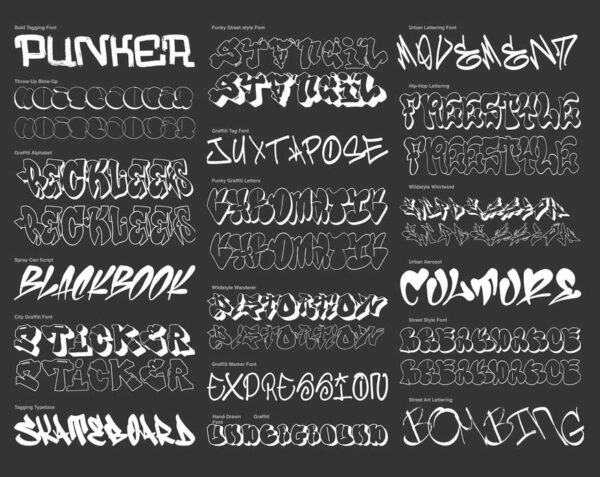 Bold Tagging Font
PUNKER
Throw-Up Blow-Up
Graffiti Alphabet
RECKLEES
RECKLEES
Spray Can Script
BLACKBOOK
City Graffiti Font
STICKER
STICKER
Tagging Typeface
SKATEBOARD
Funky Street style Font
STENCIL
STENCIL
Graffiti Tag Font
JUXTAPOSE
Funky Graffiti Letters
CHROMATIC
CHROMATIC
Wildstyle Wanderer
DISTORTION
DISTORTION
Graffiti Marker Font
EXPRESSION
Hand-Drawn Graffiti
Font
UNDERGROUND
Urban Lettering Font
MOVEMENT
Hip-Hop Lettering
FREESTYLE
FREESTYLE
Wildstyle Whirlwind
Urban Aerosol
CULTURE
Street Style Font
BREAKDANCE
BREAKDANCE
Street Art Lettering
BOMBING